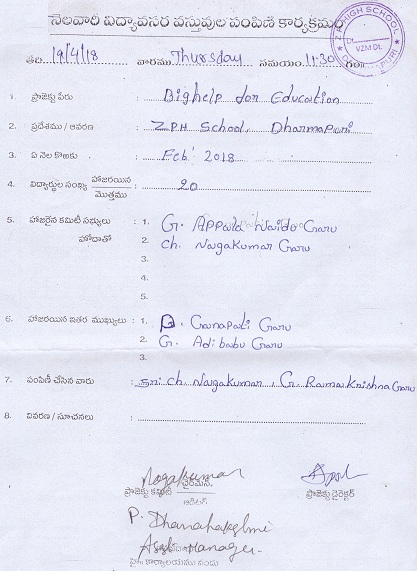 నెలవారీ విద్యావసర వస్తువుల పంపిణీ కార్యక్రమం
Z P HIGH SCHOOL
Dt.
VZM Dt.
తేది. 19/4/18 వారము Thursday సమయం 11:30 గం॥
1. ప్రాజెక్టు పేరు : Bighelp for Education
2. ప్రదేశము / ఆవరణ : ZPH School, Dharmapuri
3. ఏ నెల కొఱకు : Feb' 2018
4. విద్యార్థుల సంఖ్య హాజరయిన : 20
మొత్తము
5. హాజరైన కమిటీ సభ్యులు : 1. G. Appala Naidu Garu
హోదాతో 2. Ch. Nagakumar Garu
3.
4.
5.
6. హాజరయిన ఇతర ముఖ్యులు : 1. D. Ganapati Garu
2. G. Adibabu Garu
3.
7. పంపిణీ చేసిన వారు : Sri Ch. Nagakumar, G. Ramakrishna Garu
8. వివరణ / సూచనలు :
Nagakumar
ప్రాజెక్టు కమిటీ ఛైర్మన్ ప్రాజెక్టు డైరెక్టర్
P. Dhanalakshmi
Asst Manager.
హైs కార్యాలయము నందు